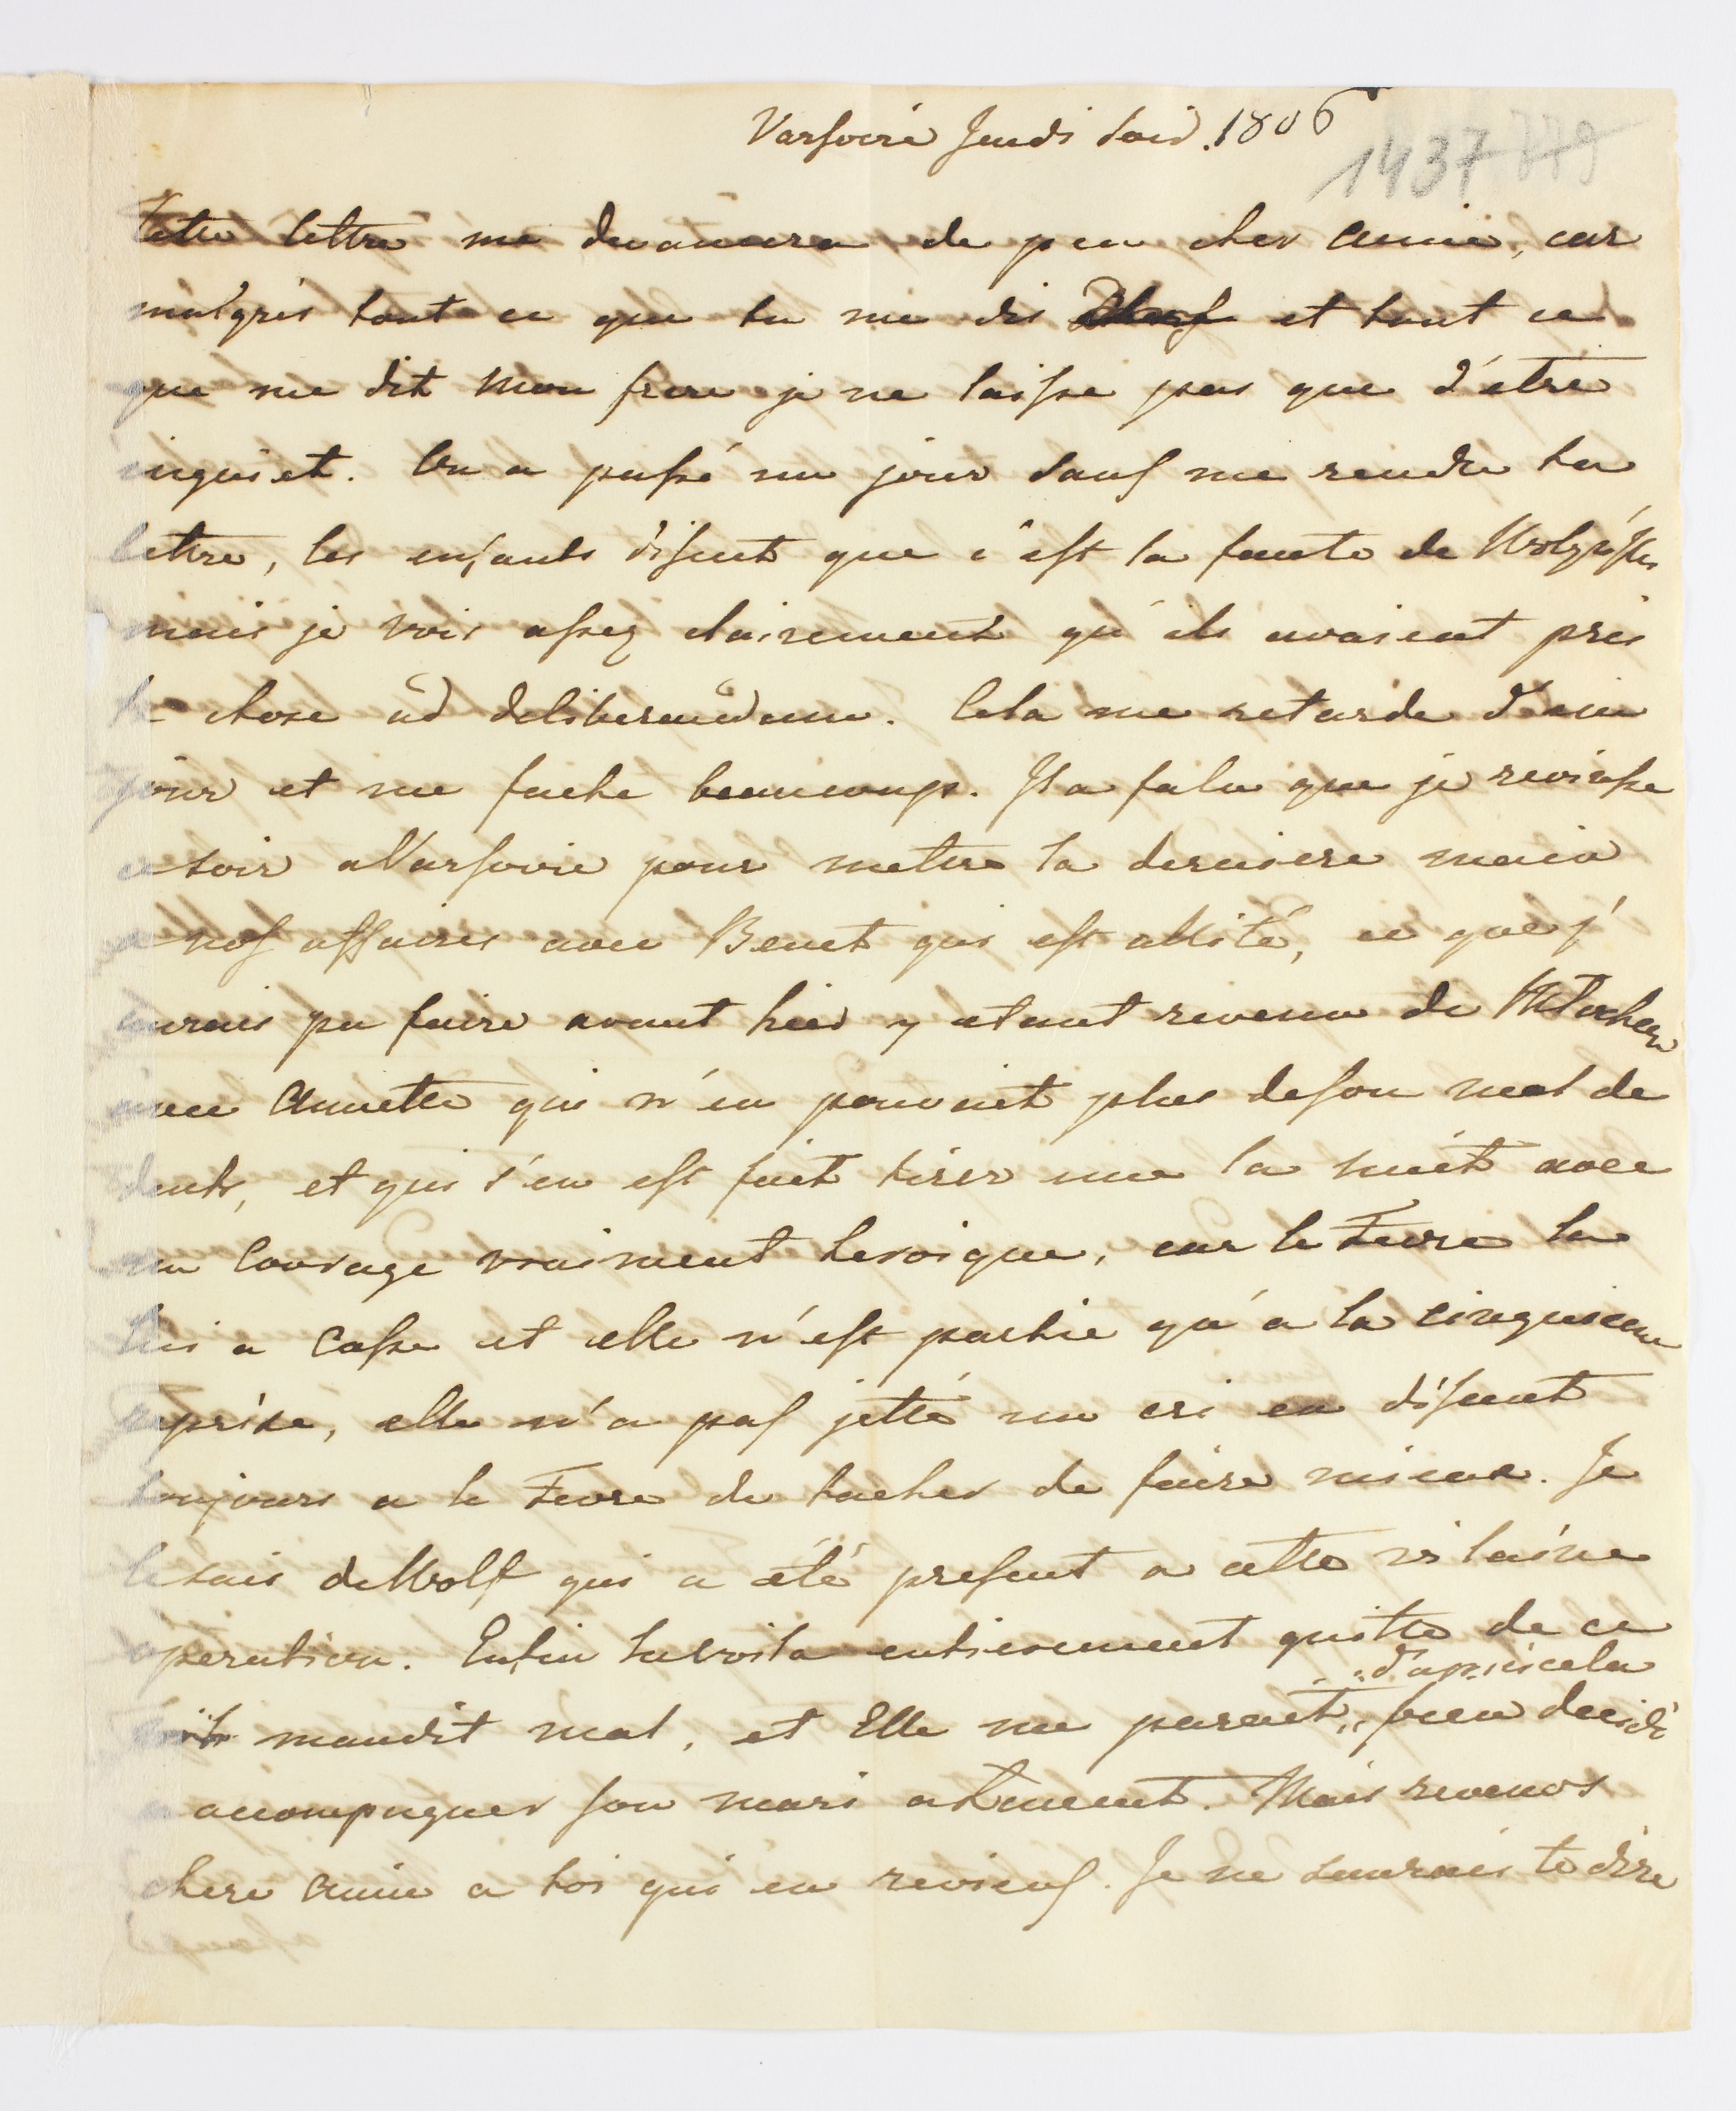 Varsovie Jeudi soir. 1806
1437 779
Cette lettre me devancera de peu cher amie, car
malgrés tout ce que tu me dis et tout ce
que me dit mon frere je ne laisse pas que d'etre
inquiet. On a passé un jour sans me rendre ta
lettre, les enfants disent que c'est la faute de
mais je vois assez clairement qu'ils avaient pris
la chose ad deliberandum. Cela me retarde d'un
jour et me fache beaucoup. Il a falu que je revinsse
ce soir a Varsovie pour metre la derniere main
a nos affaires avec Benet qui est allité, ce que j'
aurais pu faire avant hier y etant revenu de
avec Annette qui n'en pouvait plus de son mal de
dents, et qui s'en est fait tirer une la nuit avec
un courage vraiment heroique, car le Fevre la
lui a casse et elle n'est partie qu'a la cinquieme
reprise, elle n'a pas jetté un cri en disant
toujours a le Fevre de tacher de faire mieux. Je
le sais de Wolf qui a été present a cette vilaine
operation. Enfin la voila entierement quitte de ce
d'après cela
maudit mal, et Elle me parait, bien decidé
a accompagner son mari a Lmeent. Mais revenos
chere amie a toi qui en reviens. Je ne saurais te dire